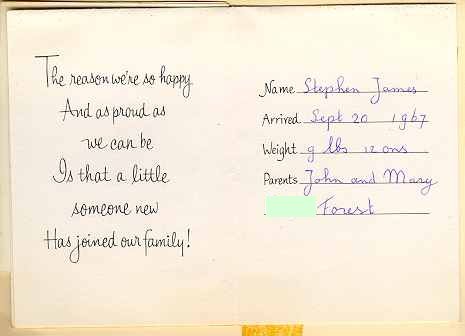 The reason we're so happy
And as proud as
we can be
Is that a little
someone new
Has joined our family!
Name Stephen James
Arrived Sept 20 1967
Weight 9 lbs 12 ons
Parents John and Mary
Forest